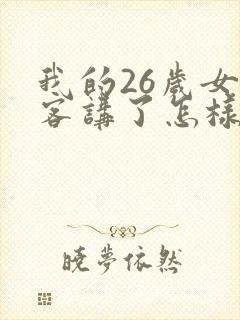 我的26歲女
客講了怎樣
曉夢依然